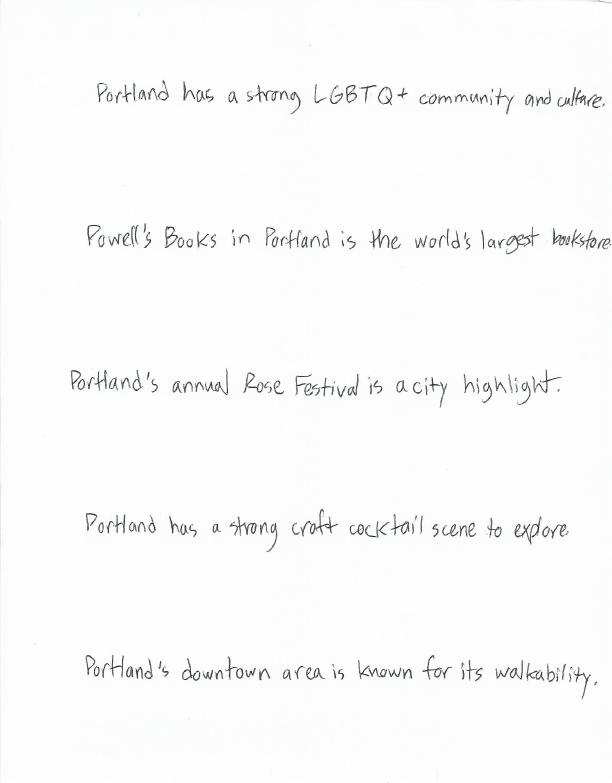 Portland has a strong LGBTQ+ community and culture.
Powell's Books in Portland is the world's largest bookstore
Portland's annual Rose Festival is a city highlight.
Portland has a strong craft cocktail scene to explore.
Portland's downtown area is known for its walkability.